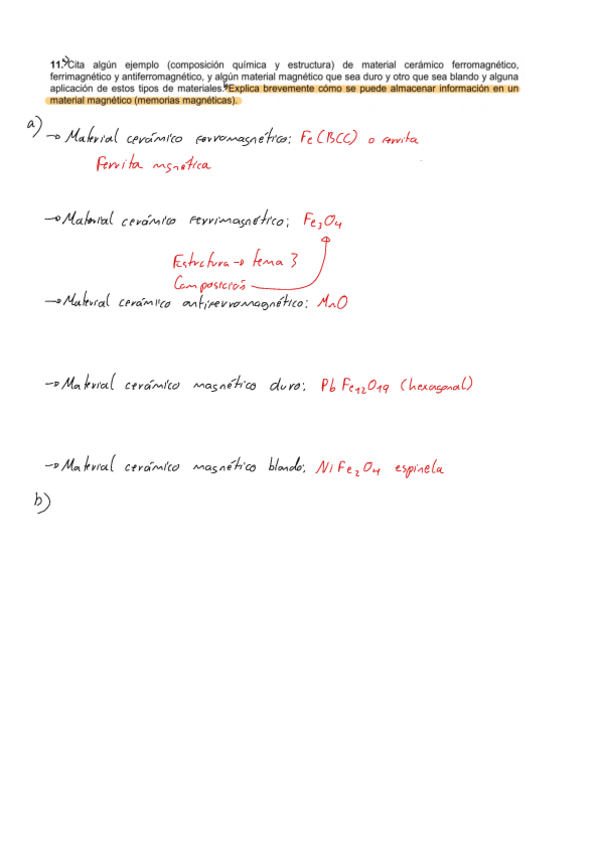 11. Cita algún ejemplo (composición química y estructura) de material cerámico ferromagnético,
ferrimagnético y antiferromagnético, y algún material magnético que sea duro y otro que sea blando y alguna
aplicación de estos tipos de materiales. Explica brevemente cómo se puede almacenar información en un
material magnético (memorias magnéticas).
a)
→ Material cerámico ferromagnético: Fe (BCC) o ferrita
Ferrita mgnética
→ Material cerámico ferrimagnético: Fe3O4
Estructura → tema 3
Composición
→ Material cerámico antiferromagnético: MnO
→ Material cerámico magnético duro: PbFe12O19 (hexagonal)
→ Material cerámico magnético blando: NiFe2O4 espinela
b)